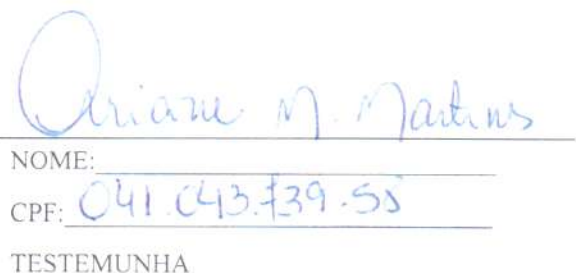 Ariane M. Martins
NOME:
CPF: 041.043.739-55
TESTEMUNHA